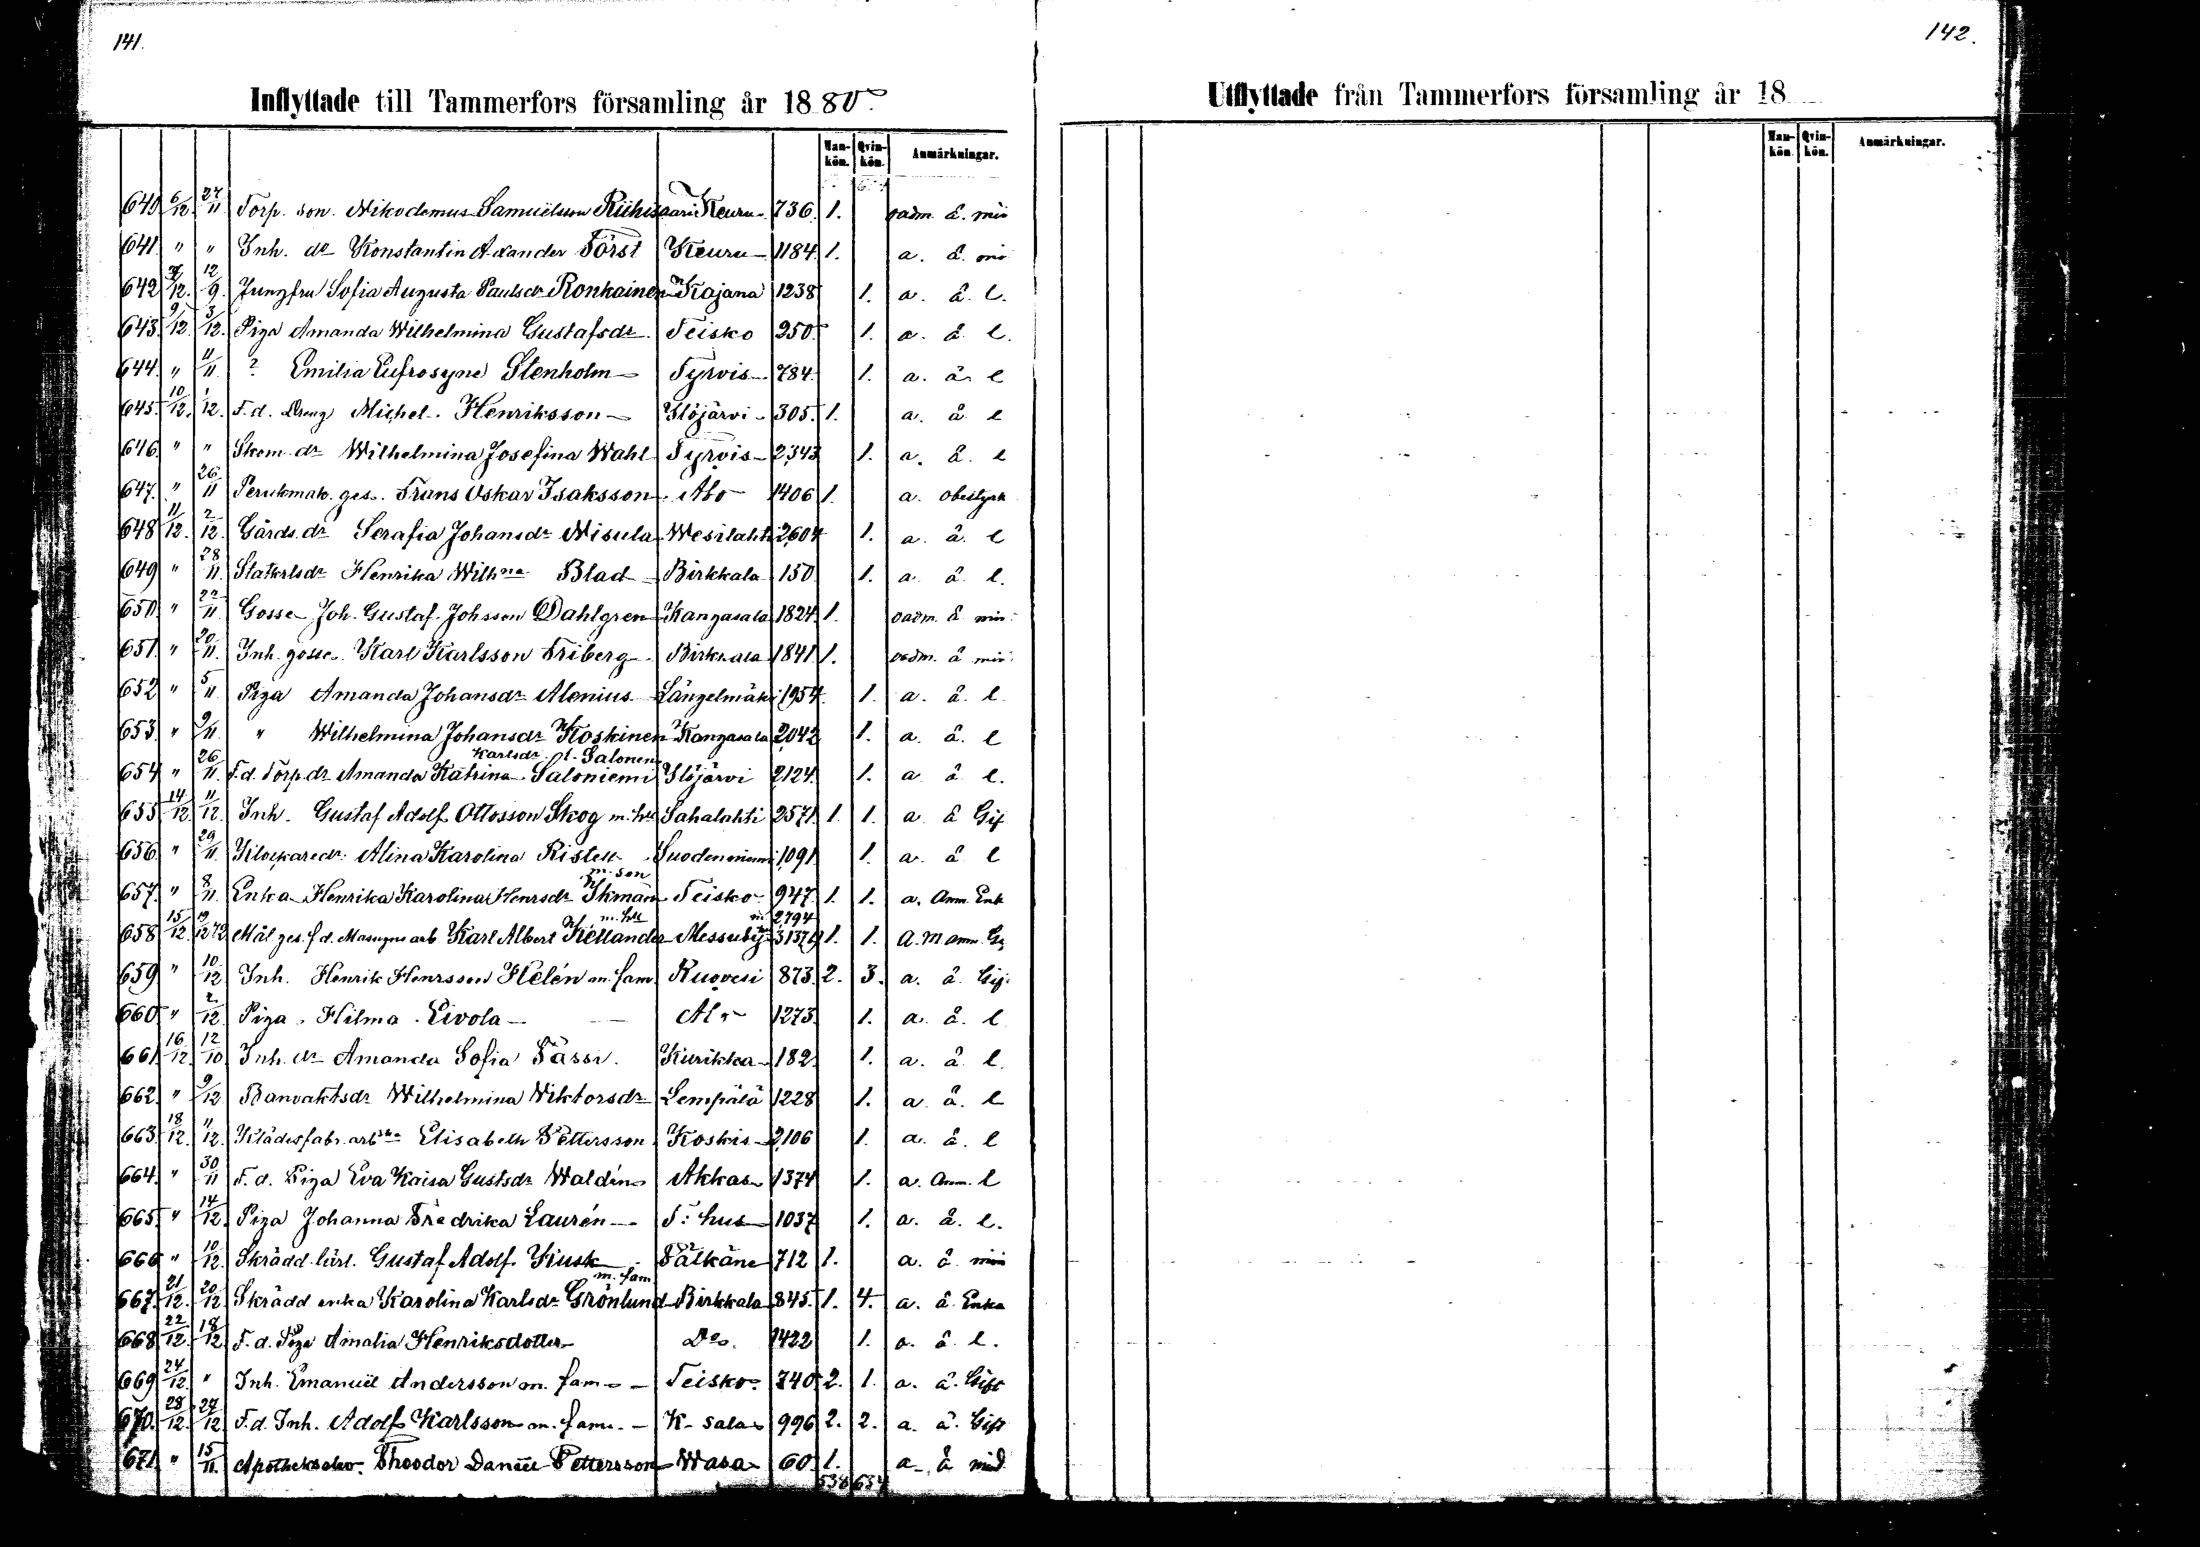 141.
142.
Inflyttade till Tammerfors församling år 1880.
Utflyttade från Tammerfors församling år 18
Man-kön. Qvin-kön. Anmärkningar.
Man-kön. Qvin-kön. Anmärkningar.
640 6/12 27/11 Torp. son. Nikodemus Samuelsson Riihisaari Keuru 736. 1. oadm. å. min
641. " " Inh. dr Konstantin Axander Först Keuru 1184. 1. a. å.
642 7/12. 12/9. Jungfru Sofia Augusta Paulsdr Ronkainen Kajana 1238 1. a. å. l.
643. 9/12. 3/12. Piga Amanda Wilhelmina Gustafsdr Teisko 250. 1. a. å. l.
644. " 11/11. ? Emilia Eufrosyne Stenholm Tyrvis 784. 1. a. å. l
645. 10/12. 1/12. F.d. Dreng Michel Henriksson Ylöjärvi 305. 1. a. å l
646. " " Skom. dr Wilhelmina Josefina Wahl Tyrvis 2343 1. a. å. l
647. " 26/11 Perukmak. ges. Frans Oskar Isaksson Åbo 1406 1. a. obestyrk
648 11/12. 2/12. Gårds. dr Serafia Johansdr Nisula Wesilahti 2604 1. a. å. l
649 " 28/11. Statkrlsdr Henrika Wilhna Blad Birkkala 150 1. a å l.
650. " 22/11. Gosse Joh. Gustaf Johsson Dahlgren Kangasala 1824. 1. oadm. å min.
651. " 20/11. Inh. gosse Karl Karlsson Friberg Birkkala 1841. 1. oadm. å min.
652 " 5/11. Piga Amanda Johansdr Alenius Längelmäki 1954. 1. a. å. l.
653. " 9/11. " Wilhelmina Johansdr Koskinen Kangasala 2042 1. a. å. l
Karlsdr l. Salonen
654 " 26/11. F.d. Torp. dr Amanda Katrina Saloniemi Ylöjärvi 2124. 1. a å l.
655 14/12. 11/12. Inh. Gustaf Adolf Ottosson Skog m. hu Sahalahti 2571. 1. 1. a å Gif
656. " 29/11. Alina Karolina Ristell Suodenniemi 1091. 1. a. å l
m. son
657. " 8/11. Enka Henrika Karolina Henrsdr Ikman Teisko 947. 1. 1. a. Anm. Enk
m. hu 2794
658 15/12. Mål. ges. f.d. Masugns arb Karl Albert Kellander Messuby 3137 1. 1. a. m anm. G
659 " 10/12 Inh. Henrik Henrsson Helén m. fam. Ruovesi 873. 2. 3. a. å. Gif.
660. " 2/12. Piga Hilma Eivola Åbo 1273. 1. a. å. l
661. 16/12. 12/10 Inh. dr Amanda Sofia Fässi. Kurikka 182. 1. a. å. l.
662. " 9/12 Banvaktsdr Wilhelmina Wiktorsdr Lempälä 1228 1. a. å. l
663. 18/12. 11/12. Klädesfabr. arbska Elisabeth Pettersson Koskis 2106 1. a. å. l
664. " 30/11 F.d. Piga Eva Kaisa Gustsdr Waldén Akkas 1374 1. a. Anm. l
665. " 14/12. Piga Johanna Fredrika Laurén T: hus 1037 1. a. å. l.
666 " 10/12. Skrädd. lärl. Gustaf Adolf Kiusk Pälkäne 712 1. a. å min
m. fam
667. 21/12. 20/12 Skrädd enka Karolina Karlsdr Grönlund Birkkala 845. 1. 4. a. å. Enka
668 22/12. 18/12 F.d. Piga Amalia Henriksdotter Do. 1422 1. a. å. l.
669 24/12. " Inh. Emanuel Andersson m. fam. Teisko 740 2. 1. a. å. Gift
670. 28/12. 27/12 F.d. Inh. Adolf Karlsson m. fam. K-sala 996 2. 2. a. å. Gift
671 " 15/11. Theodor Daniel Pettersson Wasa 60. 1. a. å
538 634